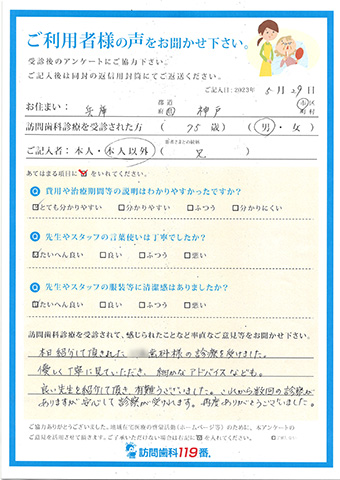 ご利用者様の声をお聞かせ下さい。
受診後のアンケートにご協力下さい。
ご記入後は同封の返信用封筒にてご返送ください。
ご記入日：2023年 5月 29日
お住まい： 兵庫 都道府県 神戸 市区町村
訪問歯科診療を受診された方 （ 75 歳） （ 男 ・ 女 ）
ご記入者：本人・本人以外 （ ）
あてはまる項目に☑をいれてください。
Q 費用や治療期間等の説明はわかりやすかったですか？
☑とても分かりやすい □分かりやすい □ふつう □分かりにくい
Q 先生やスタッフの言葉使いは丁寧でしたか？
☑たいへん良い □良い □ふつう □悪い
Q 先生やスタッフの服装等に清潔感はありましたか？
☑たいへん良い □良い □ふつう □悪い
訪問歯科診療を受診されて、感じられたことなど率直なご意見等をお聞かせ下さい。
本日紹介して頂きました 歯科様の診療を受けました。
優しく丁寧に見ていただき、細かなアドバイスなども。
良い先生を紹介して頂き、有難うございました。これから数回の診察が
ありますが安心して診察が受けれます。再度ありがとうございました。
ご協力ありがとうございました。地域在宅医療の啓発活動（ホームページ等）のために、本アンケートの
ご意見を活用させて頂きます。ご了承いただけない場合は右記に☑を入れてください。
訪問歯科119番。